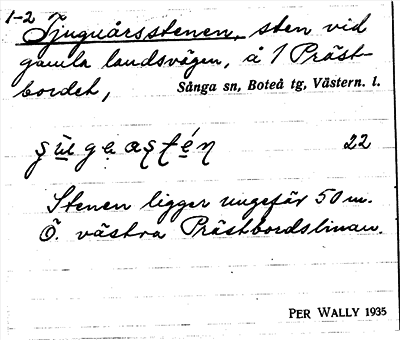 1-2 Tjuguårsstenen, sten vid
gamla landsvägen, å 1 Präst-
bordet, Sånga sn, Boteå tg, Västern. l.
22
Stenen ligger ungefär 50 m.
Ö. västra Prästbordslinan.
PER WALLY 1935